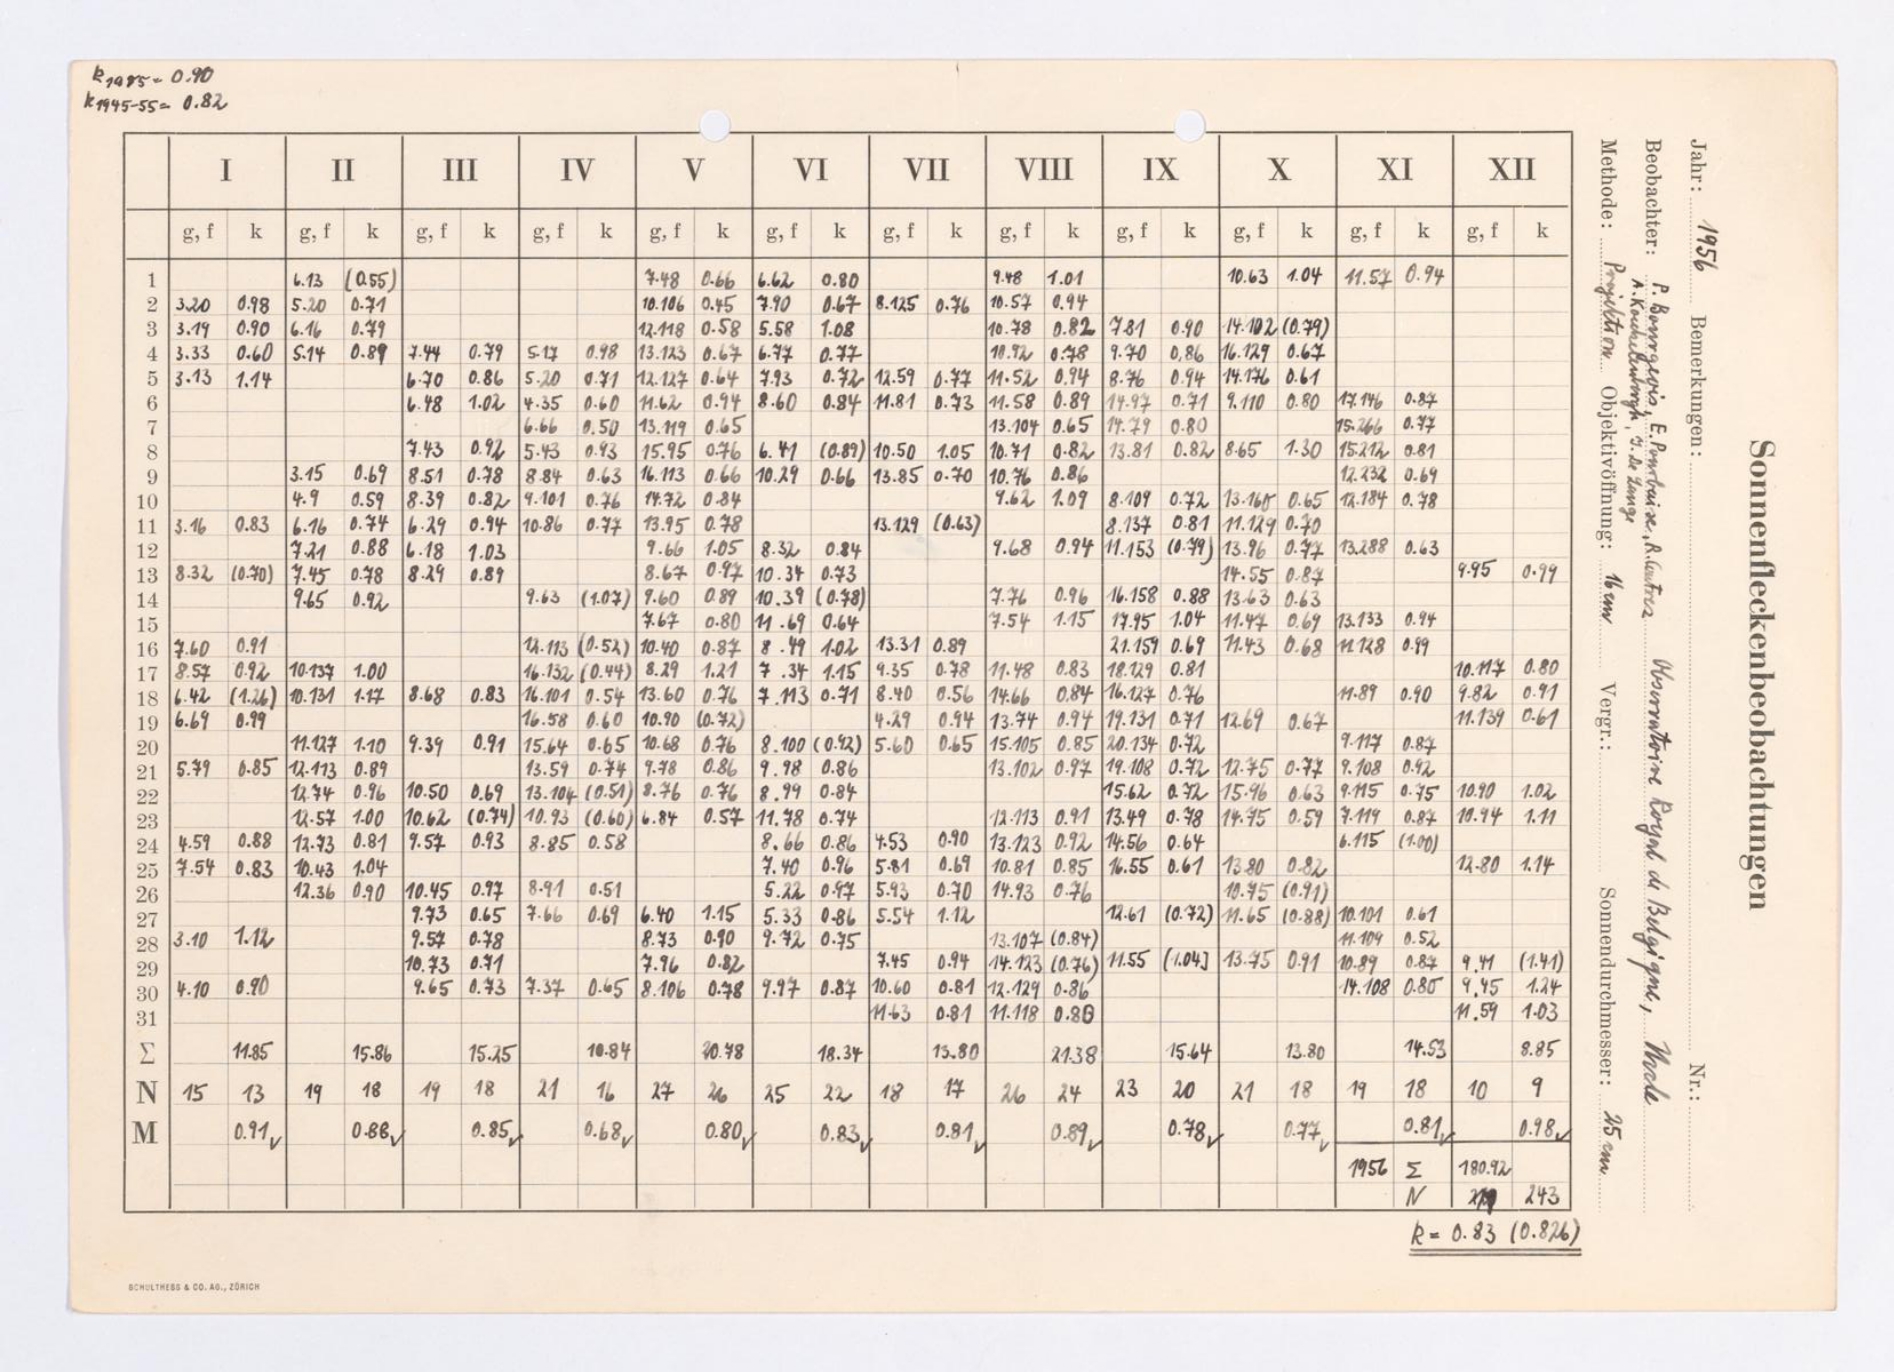 k1955= 0.90
k1945-55= 0.82
Sonnenfleckenbeobachtungen
Jahr: 1956 Bemerkungen: Nr.:
Beobachter: P. Bourgeois, E. Observatoire Royal de Belgique, Uccle
A.
Methode: Projektion Objektivöffnung: 16 cm Vergr.: Sonnendurchmesser: 25 cm
I II III IV V VI VII VIII IX X XI XII
g, f k g, f k g, f k g, f k g, f k g, f k g, f k g, f k g, f k g, f k g, f k g, f k
1 6.13 (0.55) 7.48 0.66 6.62 0.80 9.48 1.01 10.63 1.04 11.57 0.94
2 3.20 0.98 5.20 0.71 10.106 0.45 7.90 0.67 8.125 0.76 10.57 0.94
3 3.19 0.90 6.16 0.79 12.118 0.58 5.58 1.08 10.78 0.82 7.81 0.90 14.102 (0.79)
4 3.33 0.60 5.14 0.89 7.44 0.79 5.17 0.98 13.123 0.67 6.77 0.77 10.92 0.78 9.70 0.86 16.129 0.67
5 3.13 1.14 6.70 0.86 5.20 0.71 12.127 0.64 7.93 0.72 12.59 0.77 11.52 0.94 8.76 0.94 14.176 0.61
6 6.48 1.02 4.35 0.60 11.62 0.94 8.60 0.84 11.81 0.73 11.58 0.89 14.97 0.71 9.110 0.80 17.146 0.87
7 6.66 0.50 13.119 0.65 13.104 0.65 14.79 0.80 15.266 0.77
8 7.43 0.92 5.43 0.93 15.95 0.76 6.41 (0.89) 10.50 1.05 10.71 0.82 13.81 0.82 8.65 1.30 15.212 0.81
9 3.15 0.69 8.51 0.78 8.84 0.63 16.113 0.66 10.29 0.66 13.85 0.70 10.76 0.86 12.232 0.69
10 4.9 0.59 8.39 0.82 9.101 0.76 14.72 0.84 9.62 1.09 8.109 0.72 0.65 12.184 0.78
11 3.16 0.83 6.16 0.74 6.29 0.94 10.86 0.77 13.95 0.78 13.129 (0.63) 8.137 0.81 11.129 0.70
12 7.21 0.88 6.18 1.03 9.66 1.05 8.32 0.84 9.68 0.94 11.153 (0.79) 13.96 0.77 13.288 0.63
13 8.32 (0.70) 7.45 0.78 8.29 0.89 8.67 0.97 10.34 0.73 14.55 0.87 9.95 0.99
14 9.65 0.92 9.63 (1.07) 9.60 0.89 10.39 (0.78) 7.76 0.96 16.158 0.88 13.63 0.63
15 7.67 0.80 11.69 0.64 7.54 1.15 17.95 1.04 11.47 0.69 13.133 0.94
16 7.60 0.91 12.113 (0.52) 10.40 0.87 8.49 1.02 13.31 0.89 21.159 0.69 11.43 0.68 11.128 0.99
17 8.57 0.92 10.137 1.00 16.132 (0.44) 8.29 1.21 7.34 1.15 9.35 0.78 11.48 0.83 18.129 0.81 10.117 0.80
18 6.42 (1.26) 10.131 1.17 8.68 0.83 16.101 0.54 13.60 0.76 7.113 0.71 8.40 0.56 14.66 0.84 16.127 0.76 11.89 0.90 9.82 0.91
19 6.69 0.99 16.58 0.60 10.90 (0.72) 4.29 0.94 13.74 0.94 19.131 0.71 12.69 0.67 11.139 0.61
20 11.127 1.10 9.39 0.91 15.64 0.65 10.68 0.76 8.100 (0.92) 5.60 0.65 15.105 0.85 20.134 0.72 9.117 0.87
21 5.79 0.85 12.113 0.89 13.59 0.74 9.78 0.86 9.98 0.86 13.102 0.97 19.108 0.72 12.75 0.77 9.108 0.92
22 12.74 0.96 10.50 0.69 13.104 (0.51) 8.76 0.76 8.99 0.84 15.62 0.72 15.96 0.63 9.115 0.75 10.90 1.02
23 12.57 1.00 10.62 (0.74) 10.93 (0.60) 6.84 0.57 11.78 0.74 12.113 0.91 13.49 0.78 14.75 0.59 7.119 0.87 10.94 1.11
24 4.59 0.88 12.73 0.81 9.57 0.93 8.85 0.58 8.66 0.86 4.53 0.90 13.123 0.92 14.56 0.64 6.115 (1.00)
25 7.54 0.83 10.43 1.04 7.40 0.96 5.81 0.69 10.81 0.85 16.55 0.61 13.80 0.82 12.80 1.14
26 12.36 0.90 10.45 0.97 8.91 0.51 5.22 0.97 5.93 0.70 14.93 0.76 10.75 (0.91)
27 9.73 0.65 7.66 0.69 6.40 1.15 5.33 0.86 5.54 1.12 12.61 (0.72) 11.65 (0.88) 10.101 0.61
28 3.10 1.12 9.57 0.78 8.73 0.90 9.72 0.75 13.107 (0.84) 11.109 0.52
29 10.73 0.71 7.96 0.82 7.45 0.94 14.123 (0.76) 11.55 (1.04) 13.75 0.91 10.89 0.87 9.41 (1.41)
30 4.10 0.90 9.65 0.73 7.37 0.65 8.106 0.78 9.97 0.87 10.60 0.81 12.129 0.86 14.108 0.85 9.45 1.24
31 11.63 0.81 11.118 0.80 11.59 1.03
Σ 11.85 15.86 15.25 10.84 20.78 18.34 13.80 21.38 15.64 13.80 14.53 8.85
N 15 13 19 18 19 18 21 16 27 26 25 22 18 17 26 24 23 20 21 18 19 18 10 9
M 0.91✓ 0.88✓ 0.85✓ 0.68✓ 0.80✓ 0.83✓ 0.81✓ 0.89✓ 0.78✓ 0.77✓ 0.81✓ 0.98✓
1956 Σ 180.92
N 243
k = 0.83 (0.826)
SCHULTHESS & CO. AG., ZÜRICH